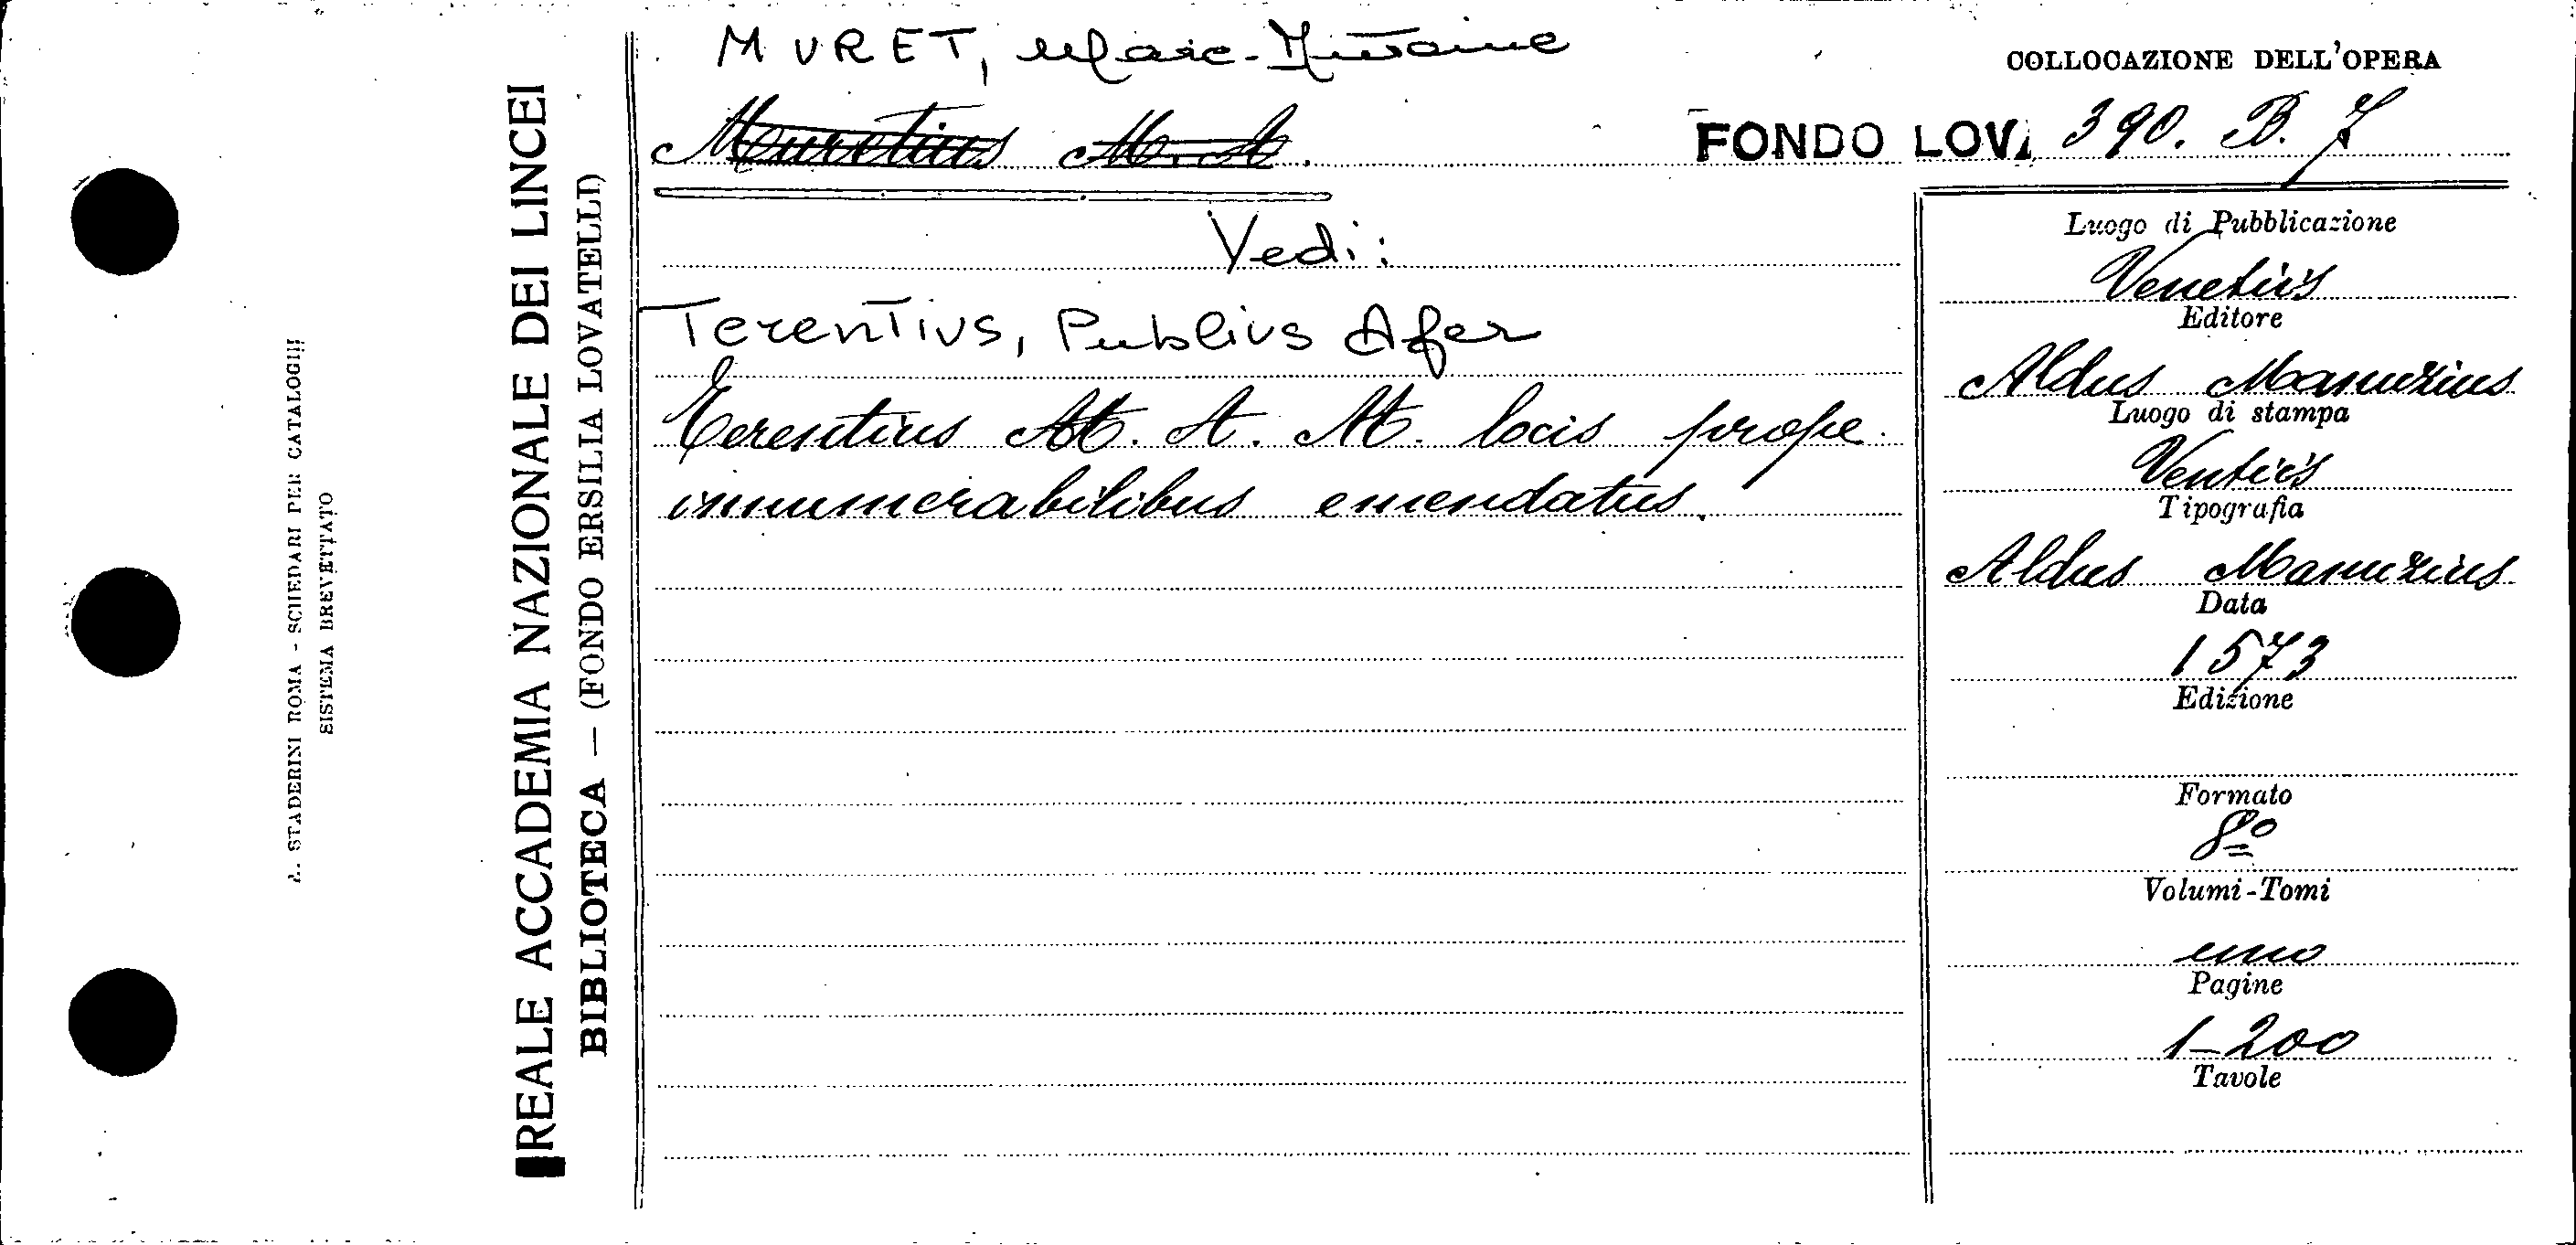 A. STADERINI ROMA - SCHEDARI PER CATALOGHI
SISTEMA BREVETTATO
REALE ACCADEMIA NAZIONALE DEI LINCEI
BIBLIOTECA — (FONDO ERSILIA LOVATELLI)
MURET, Marc-Antoine
Mouretius M. A.
Vedi:
Terentius, Publius Afer
Terentius M. A. M. locis prope
innumerabilibus emendatus.
COLLOCAZIONE DELL'OPERA
FONDO LOV. 390. B. 7
Luogo di Pubblicazione
Venetiis
Editore
Aldus Manuzius
Luogo di stampa
Ventiis
Tipografia
Aldus Manuzius
Data
1573
Edizione
Formato
8º
Volumi-Tomi
uno
Pagine
1-200
Tavole